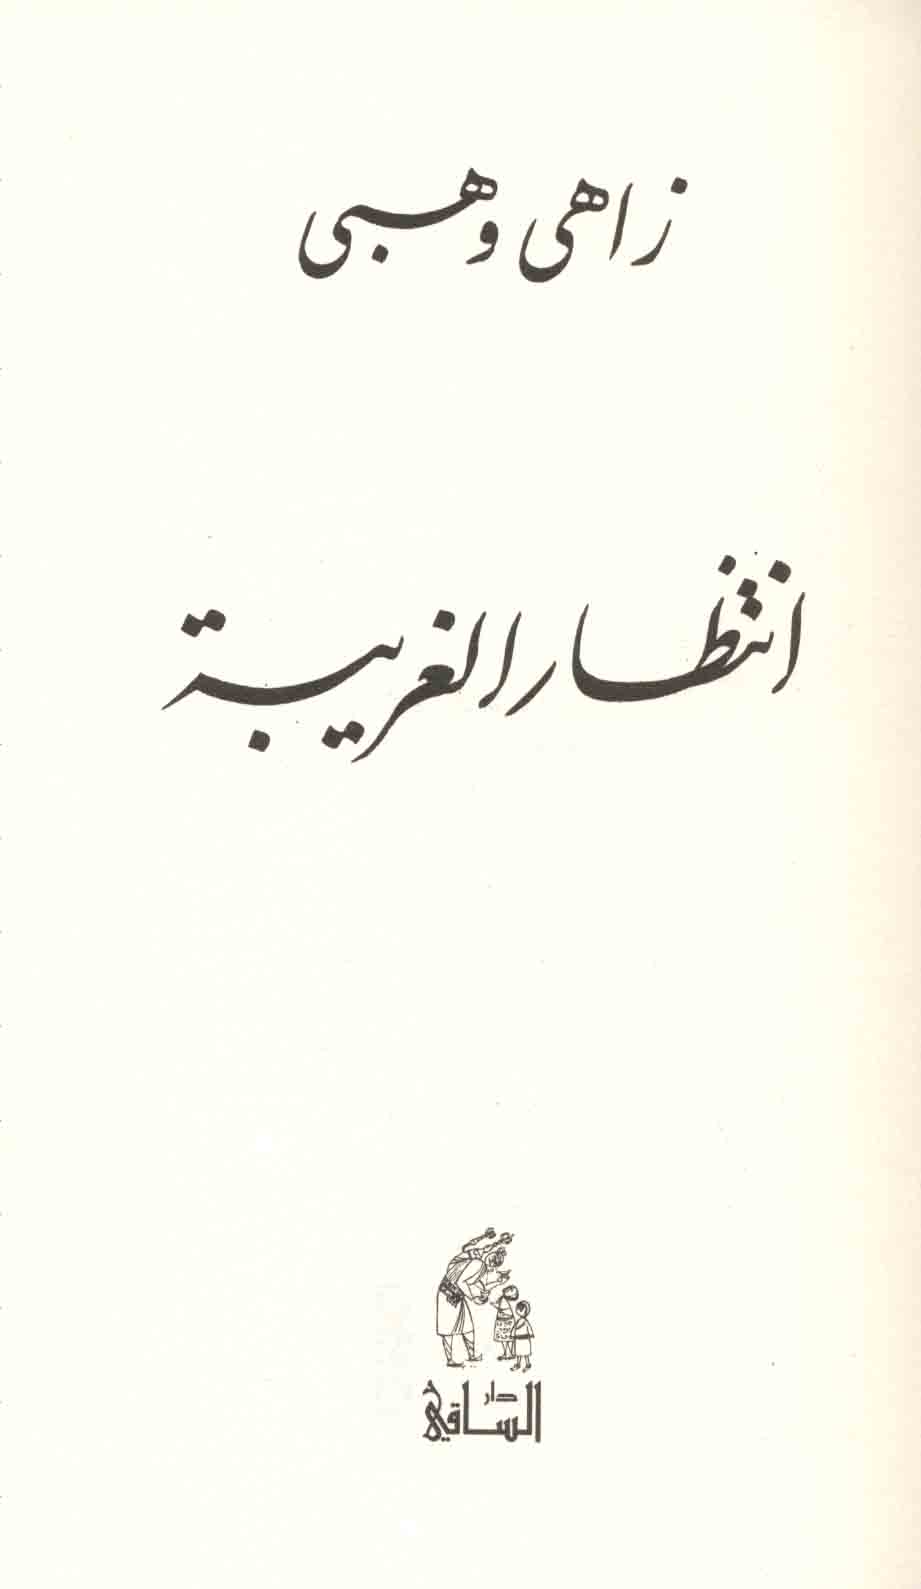 زاهي وهبي
انتظار الغريبة
دار
الساقي